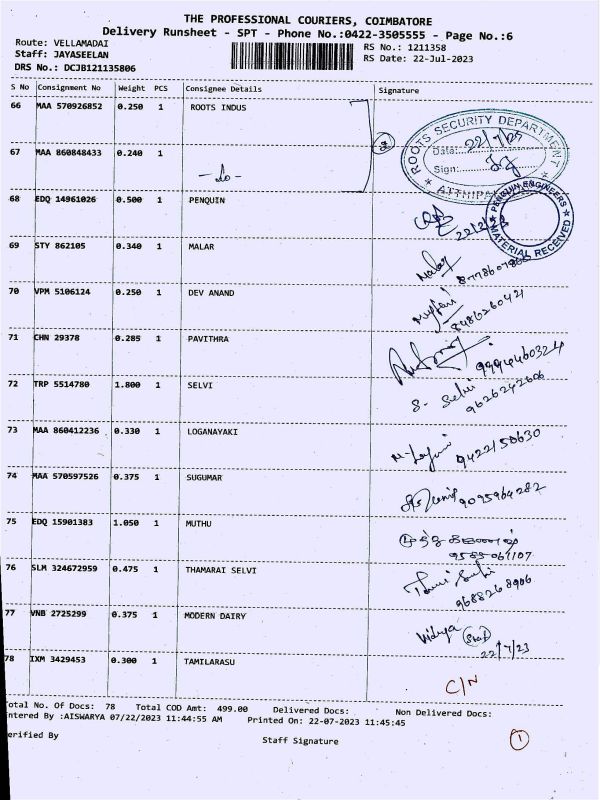 THE PROFESSIONAL COURIERS, COIMBATORE
Delivery Runsheet - SPT - Phone No.:0422-3505555 - Page No.:6
Route: VELLAMADAI
RS No.: 1211358
Staff: JAYASEELAN
RS Date: 22-Jul-2023
DRS No.: DCJB121135806
S No Consignment No Weight PCS Consignee Details Signature
66 MAA 570926852 0.250 1 ROOTS INDUS
ROOTS SECURITY DEPARTMENT
Date: 22/7/23
Sign:
67 MAA 860848433 0.240 1 -do-
68 EDQ 14961026 0.500 1 PENQUIN
PENGUIN ENGINEERS
MATERIAL RECEIVED
69 STY 862105 0.340 1 MALAR Malar
70 VPM 5106124 0.250 1 DEV ANAND
8486260421
71 CHN 29378 0.285 1 PAVITHRA
9994460324
72 TRP 5514780 1.800 1 SELVI S. Selvi
9626242606
73 MAA 860412236 0.330 1 LOGANAYAKI
9422150630
74 MAA 570597526 0.375 1 SUGUMAR
9095964282
75 EDQ 15901383 1.050 1 MUTHU
9585061107
76 SLM 324672959 0.475 1 THAMARAI SELVI
9688268906
77 VNB 2725299 0.375 1 MODERN DAIRY Vidya
22/7/23
78 IXM 3429453 0.300 1 TAMILARASU C/N
otal No. Of Docs: 78 Total COD Amt: 499.00 Delivered Docs: Non Delivered Docs:
ntered By :AISWARYA 07/22/2023 11:44:55 AM Printed On: 22-07-2023 11:45:45
erified By Staff Signature 1